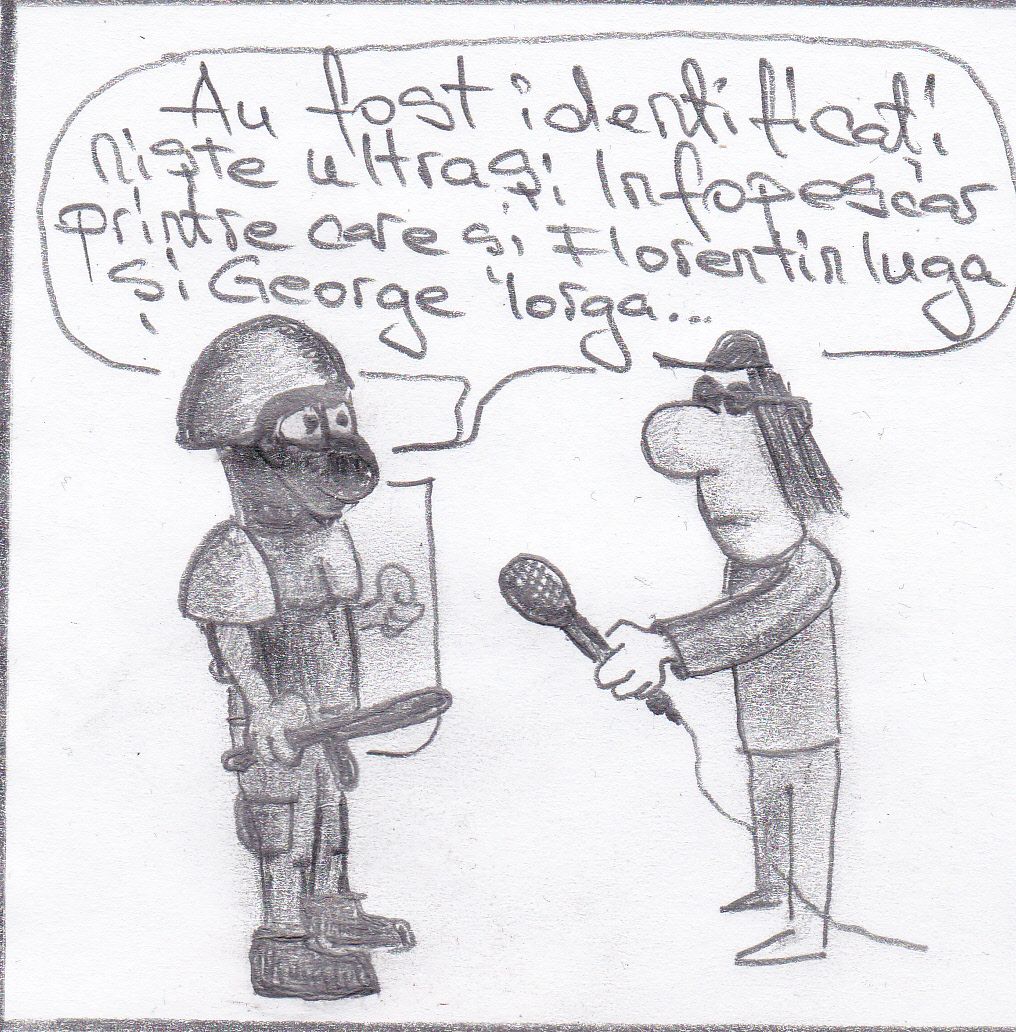 Au fost identificați
niște ultrași Infopescar
printre care și Florentin Iuga
și George Iorga...